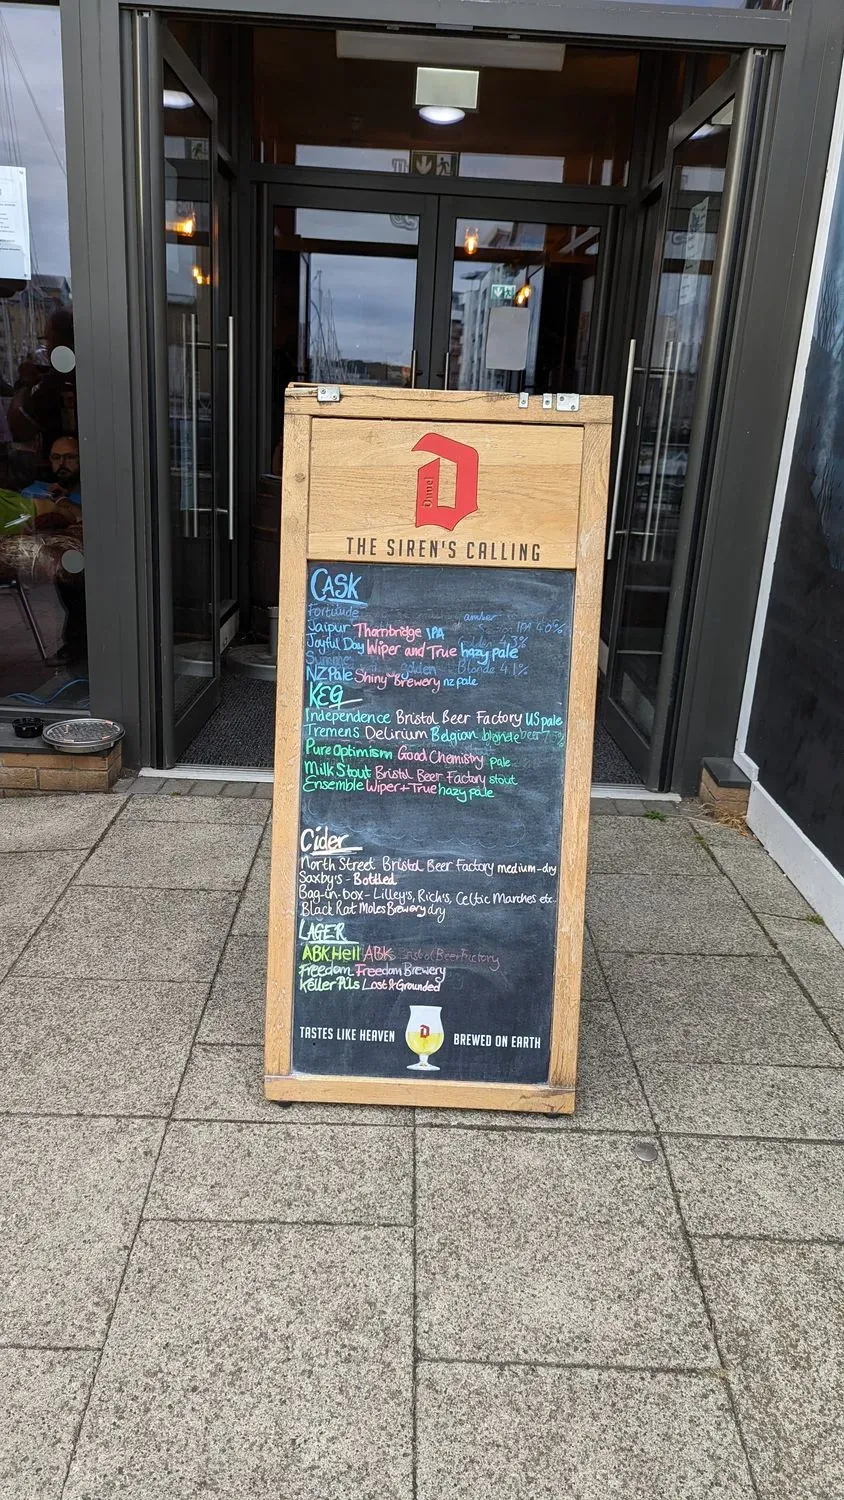 Duvel
THE SIREN'S CALLING
CASK
Fortitude amber IPA 4.0%
Jaipur Thornbridge IPA
Joyful Day Wiper and True hazy pale
golden Blonde 4.1%
NZ Pale Shiny Brewery nz pale
KEG
Independence Bristol Beer Factory US pale
Tremens Delirium Belgian blonde beer
Pure Optimism Good Chemistry pale
Milk Stout Bristol Beer Factory stout
Ensemble Wiper + True hazy pale
Cider
North Street Bristol Beer Factory medium-dry
Saxby's - Bottled
Bag-in-box - Lilley's, Rich's, Celtic Marches etc.
Black Rat Moles Brewery dry
LAGER
ABK Hell ABK Bristol Beer Factory
Freedom Freedom Brewery
Keller Pils Lost & Grounded
TASTES LIKE HEAVEN BREWED ON EARTH